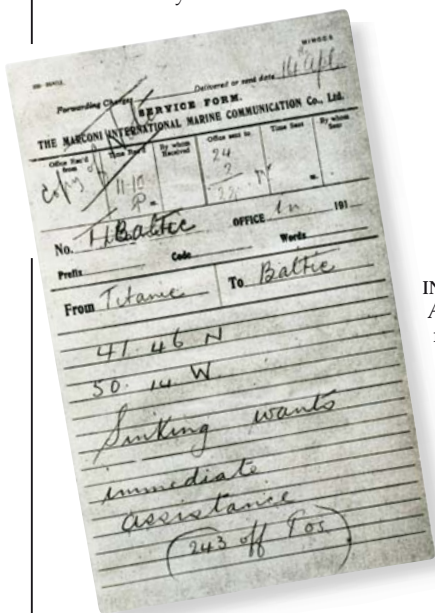 Delivered or send date 14 Apl
Forwarding Charges
SERVICE FORM.
THE MARCONI INTERNATIONAL MARINE COMMUNICATION Co., Ltd.
Office Rec'd from
Time Rec'd
By whom Received
Office sent to
Time Sent
By whom Sent
Copy of
11-10
P
24
2
No. Baltic OFFICE 191
Prefix Code Words
From Titanic To Baltic
41. 46 N
50. 14 W
Sinking wants
immediate
assistance
(243 off Pos)
IN
A